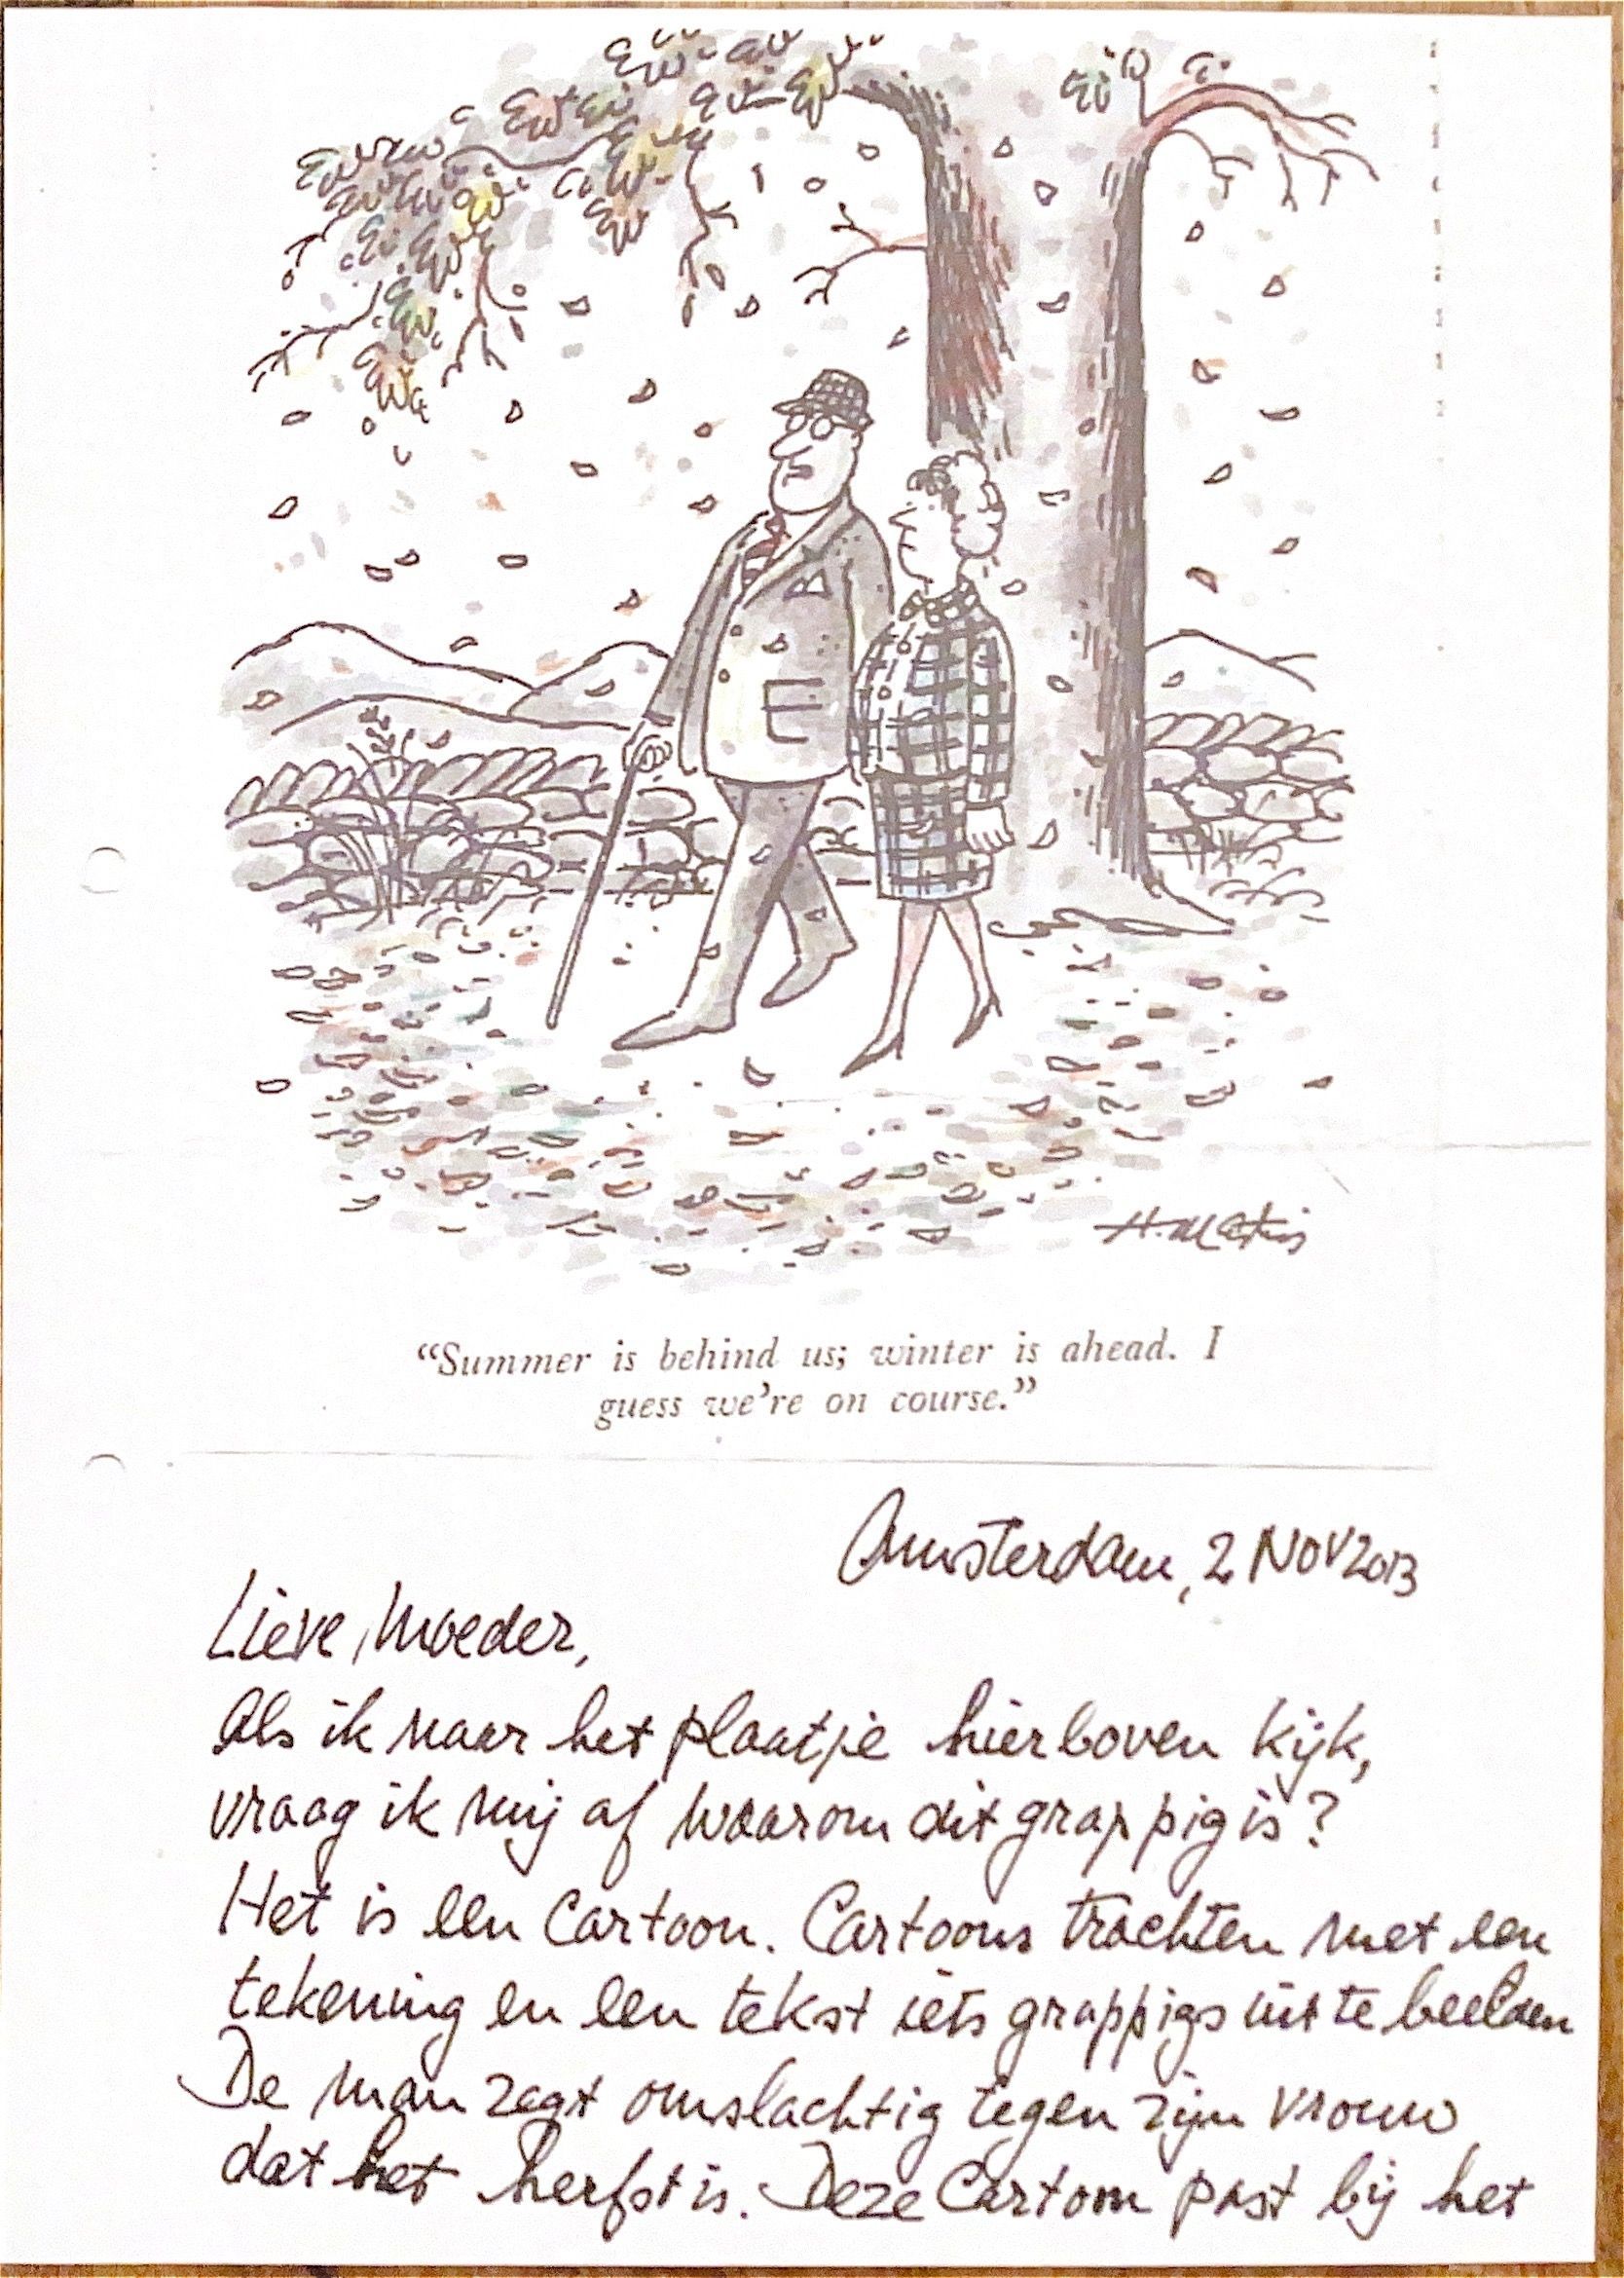 H. Martin
“Summer is behind us; winter is ahead. I
guess we’re on course.”
Amsterdam, 2 NOV 2013
Lieve Moeder,
Als ik naar het plaatje hierboven kijk,
vraag ik mij af waarom dit grappig is?
Het is een Cartoon. Cartoons trachten met een
tekening en een tekst iets grappigs uit te beelden
De man zegt omslachtig tegen zijn vrouw
dat het herfst is. Deze Cartoon past bij het